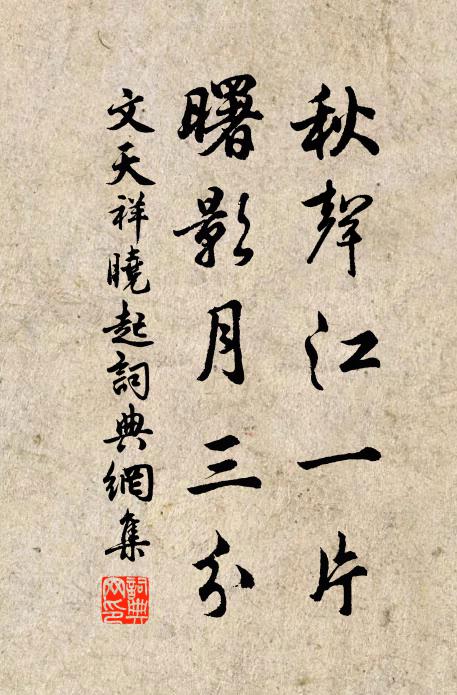 秋聲江一片
曙影月三分
文天祥曉起詞典網集
詞典網印